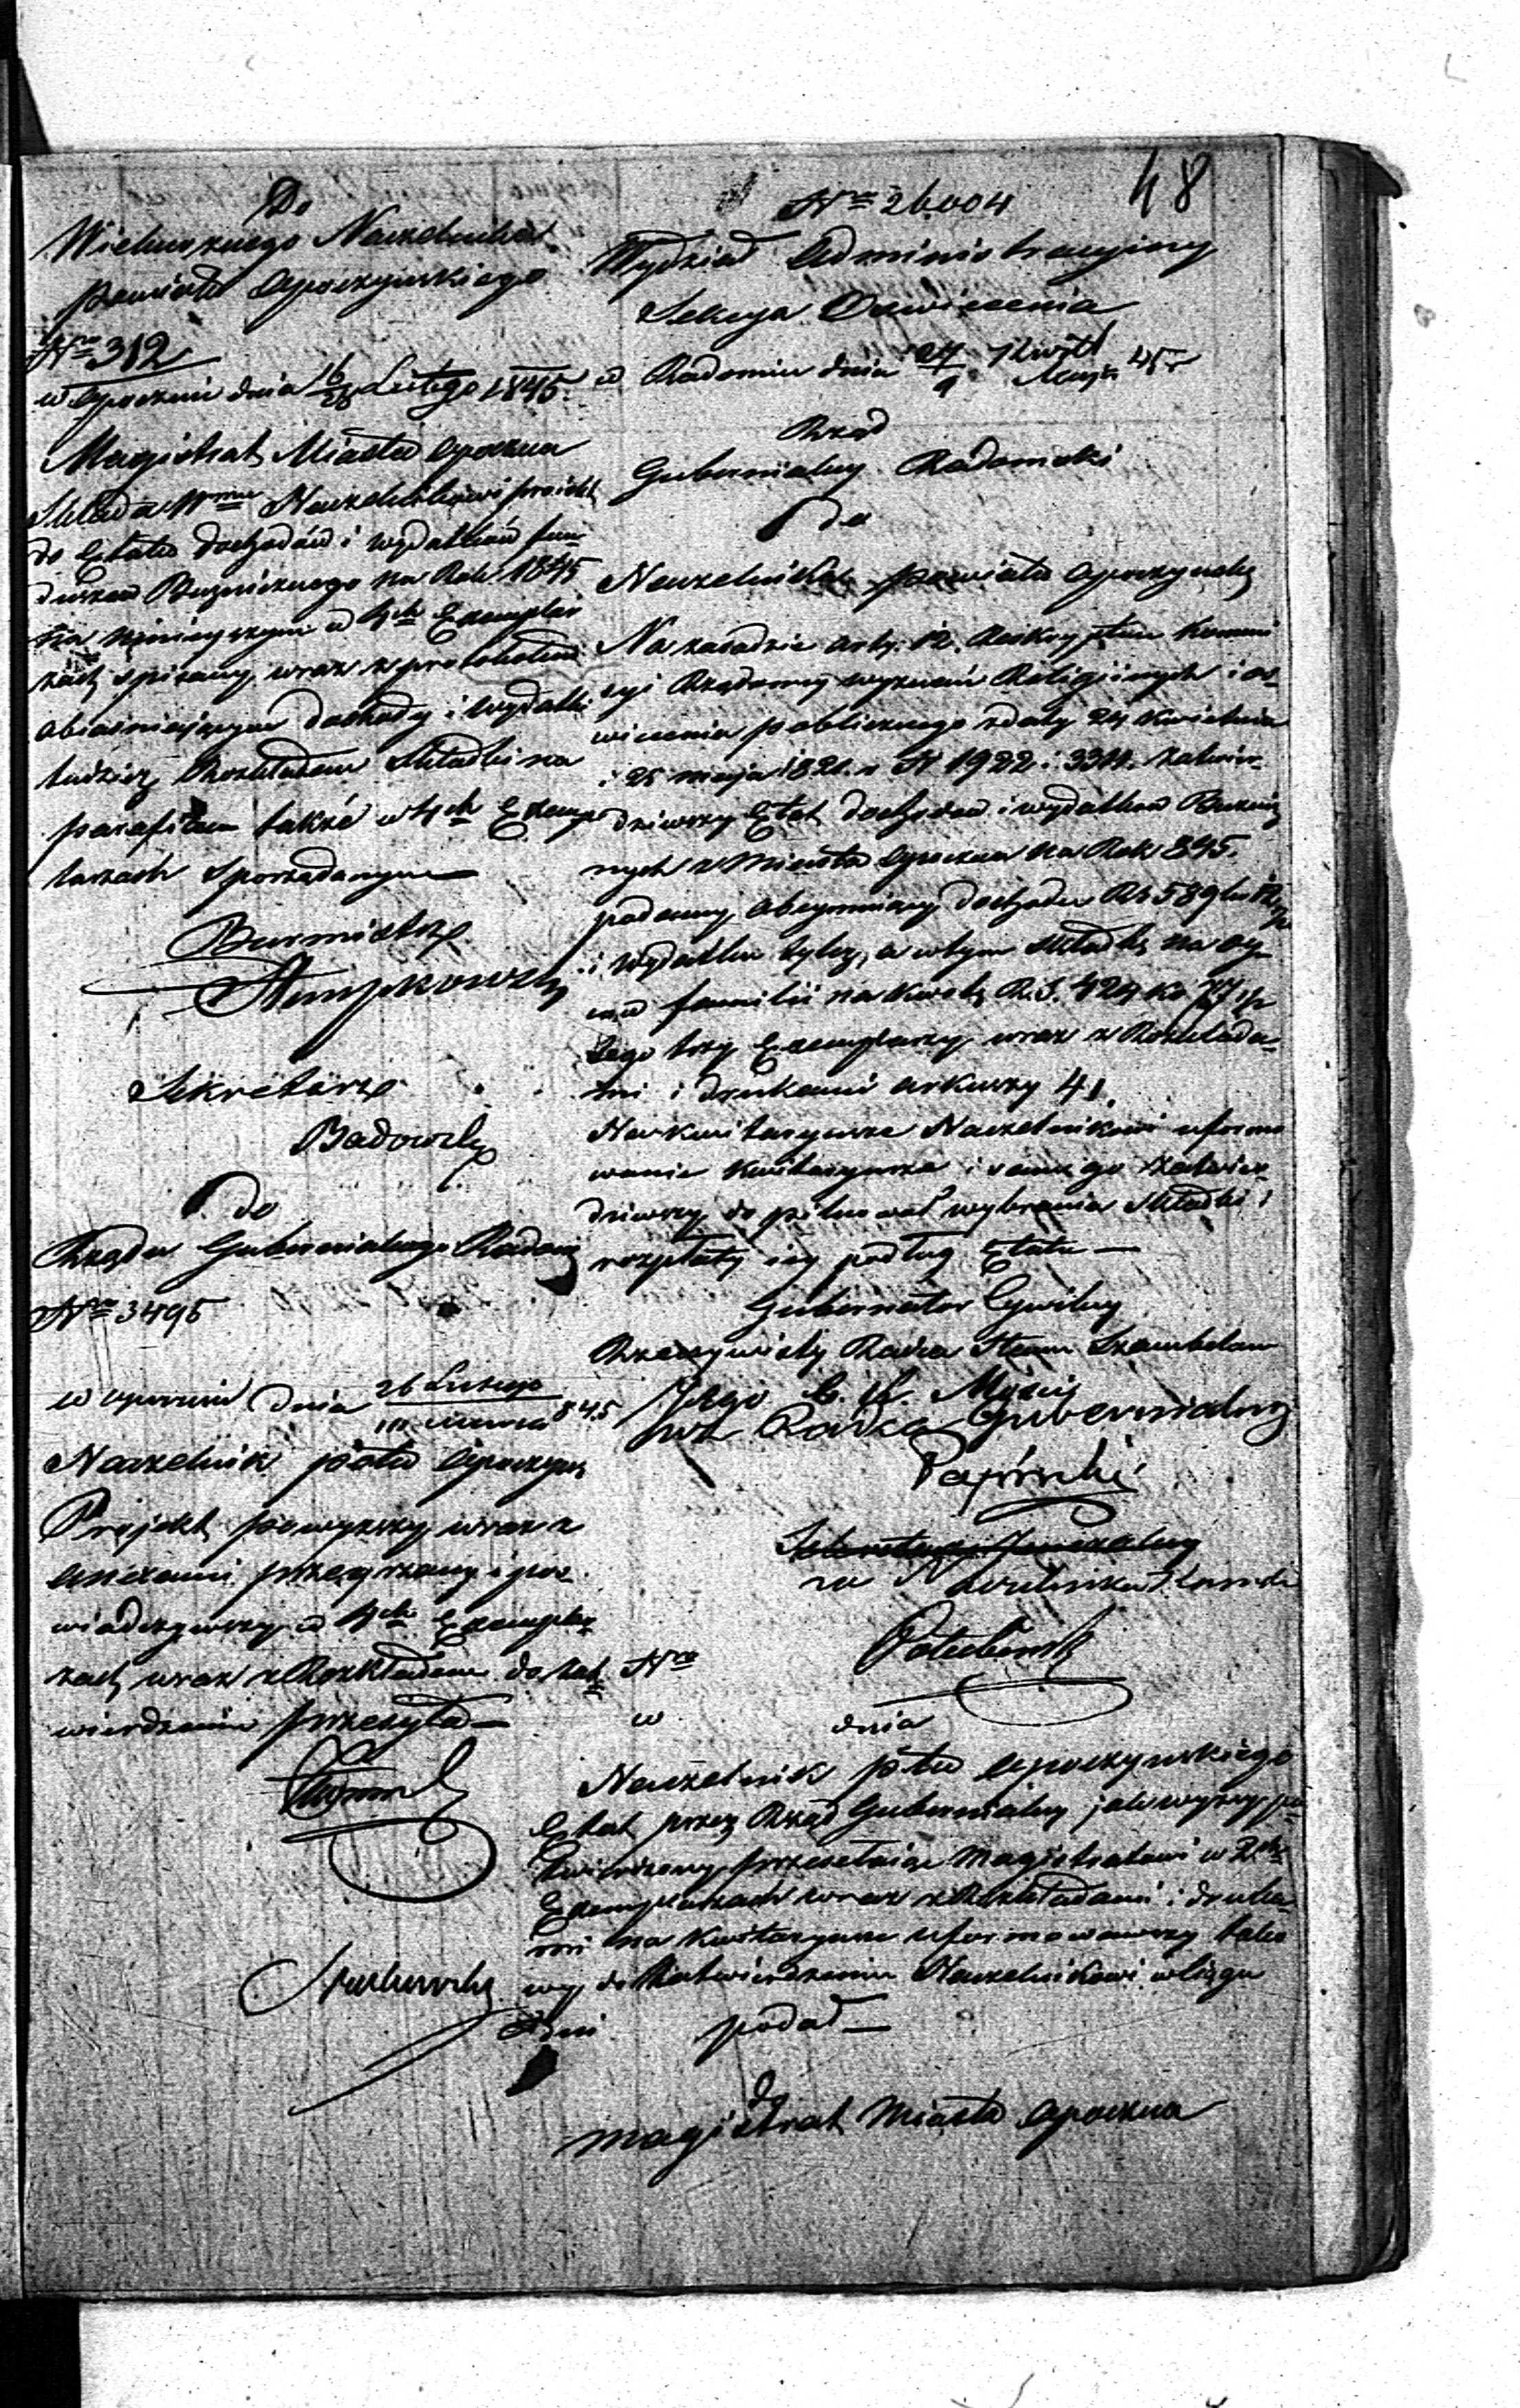 48
Do
Wielmożnego Naczelnika
Powiatu Opoczyńskiego
Nro 312
w Opocznie dnia 16/28 Lutego 1845.
Magistrat Miasta Opoczna
Składa Wmu Naczelnikowi projekt
do Etatu dochodów i wydatków fun-
duszów Bużnicznego na Rok 1845
na niniejszym w 4ch Exempla
rzach spisany wraz z protokołem
obiaśniającym dochody i wydatki
tudzież Rozkładem Składki na
parafian także w 4ch Exemp
larzach sporządzonym
Burmistrz
Sekretarz
Badowski
do
Rządu Gubernialnego Radom
Nro 3495
w Opocznie dnia 26 Lutego / 10 marca 845
Naczelnik pttu Opoczyń
Projekt powyższy wraz z
anexami przejrzany i poś
wiadczywszy w 4ch Exempla
rzach wraz z Rozkładem do zat
wierdzenia przesyła
Nro 26004
Wydział Administracyjny
Sekcya Oswiecenia
w Radomiu dnia 27/9 Kwiet/Maja 45 r
Rząd
Gubernialny Radomski
do
Naczelnika powiatu Opoczyńskg
Na zasadzie arty: 12. Reskryptu Kommi
syi Rządowey wyznań Religiinych i oś-
wiecenia publicznego z daty 24 Kwietnia
i 25 maja 1821. r N 1922 i 3314. zatwier-
dziwszy Etat dochodów i wydatków Bużnicz
nych z Miasta Opoczna na Rok 845.
podany obejmujący dochodu Rs 589 ko 12 1/2
i wydatku tyleż, a w tym składkę na og-
nw familii na kwotę R.S. 424 ko 77 1/2
tego trzy Exemplarzy wraz z Rozkłada-
mi i drukami arkuszy 41.
Na kwitaryusze Naczelnikowi uformo
wanie kwitaryusza i samego zatwier
dziwszy do pilnował wybrania Składki i
rozpłaty iey podług Etatu
Gubernator Cywilny
Rzeczywisty Radca Stanu Szambelan
Jego C. K. Mości
wz Radca Gubernialny
w Naczelnika Kancel
Nro
w dnia
Naczelnik pttu Opoczyńskiego
Etat przez Rząd Gubernialny jak wyżey po
twierdzony przesełaiąc Magistratowi w 2ch
Exemplarzach wraz z Rozkładami i druka
mi na Kwitaryusz uformowawszy tako
wy do Zatwierdzenia Naczelnikowi w ciągu
dni podał
do
Magistrat Miasta Opoczna